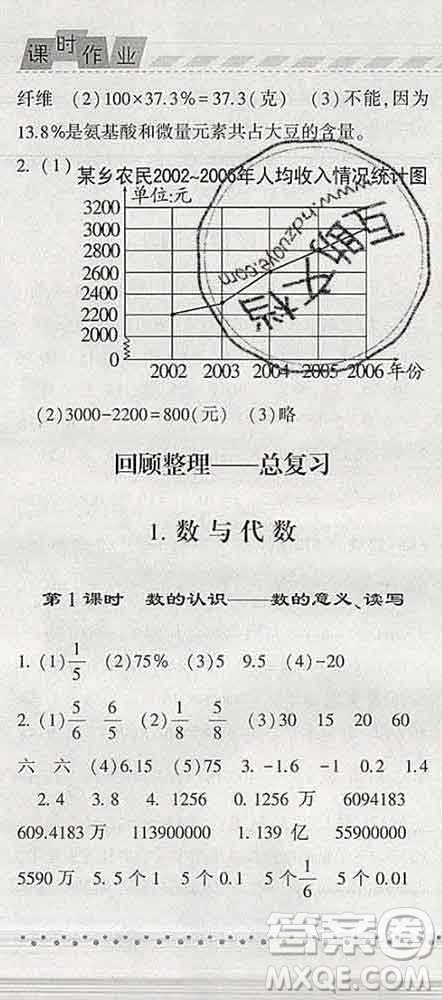 课时作业
纤维 (2)100×37.3%=37.3(克) (3)不能,因为
13.8%是氨基酸和微量元素共占大豆的含量。
2. (1) 某乡农民2002~2006年人均收入情况统计图
单位:元
3200
3000
2800
2600
2400
2200
2000
0
2002 2003 2004 2005 2006 年份
www.hdzuoye.com
互助文档
(2)3000-2200=800(元) (3)略
回顾整理——总复习
1. 数与代数
第1课时 数的认识——数的意义、读写
1. (1)1/5 (2)75% (3)5 9.5 (4)-20
2. (1)5/6 6/5 (2)1/8 5/8 (3)30 15 20 60
六 六 (4)6.15 (5)75 3. -1.6 -1 0.2 1.4
2.4 3.8 4. 1256 0.1256万 6094183
609.4183万 113900000 1.139亿 55900000
5590万 5. 5个1 5个0.1 5个1/6 5个0.01
答案卷
MXQE.COM